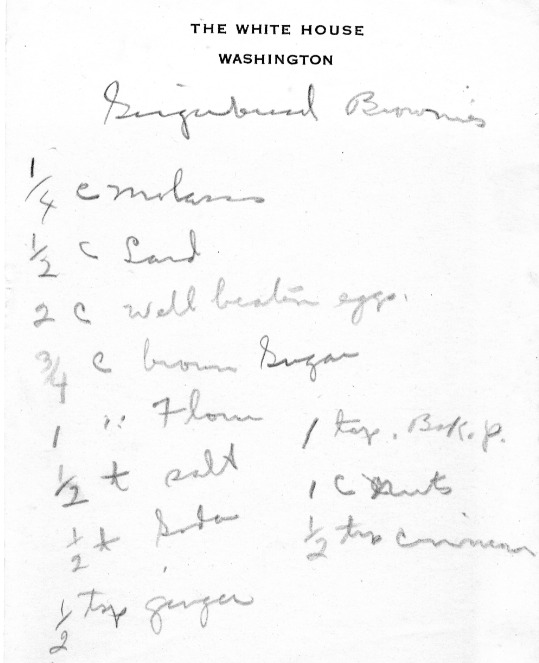 THE WHITE HOUSE
WASHINGTON
Gingerbread Brownies
1/4 c molasses
1/2 c Lard
2 c well beaten eggs.
3/4 c brown Sugar
1 " Flour
1/2 t salt
1/2 t Soda
1/2 tsp ginger
1 tsp. Bak. p.
1 C nuts
1/2 tsp cinnimon